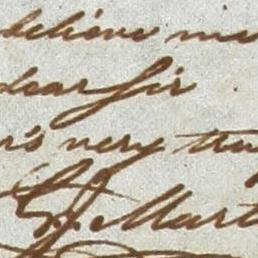 believe me
dear Sir
rs very tru
Mart